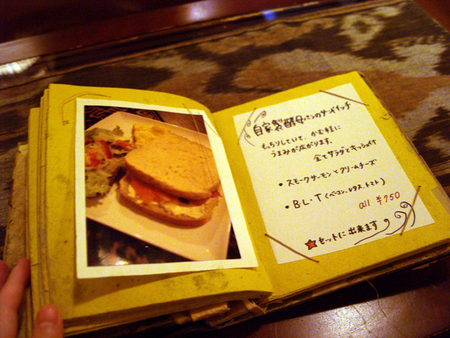 自家製酵母パンのサンドイッチ
もっちりしていて、かむ程に
うまみが広がります。
全てサラダとキッシュ付
・スモークサーモンとクリームチーズ
・B.L.T(ベーコン、レタス、トマト)
all ¥750
★セットに出来ます